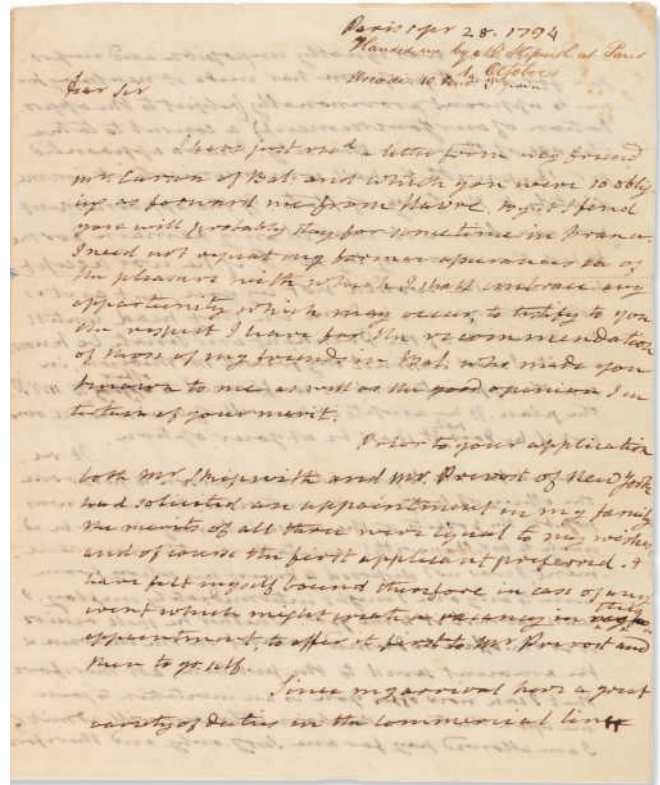 Paris Sepr 28. 1794
Handed me by Mr Skipwith at Paris
October
Dear Sir
I have just recd a letter from my friend
Mr. Carson of Balt. and which you were so oblig
ing as forward me from Havre. by it I find
you will probably stay for sometime in France.
I need not repeat my former assurances to of
the pleasure with which I shall embrace any
opportunity which may occur, to testify to you
the respect I have for the recommendation
of those of my friends in Balt. who made you
known to me as well as the good opinion I en
tertain of your merit.
Prior to your application
both Mr. Skipwith and Mr. Prevost of New York
had solicited an appointment in my family
the merits of all three were equal to my wishes
and of course the first applicant preferred. I
have felt myself bound therefore in case of any
event which might create a vacancy in
appointment, to offer it first to Mr Prevost and
then to yrself.
Since my arrival here a great
variety of duties in the commercial line